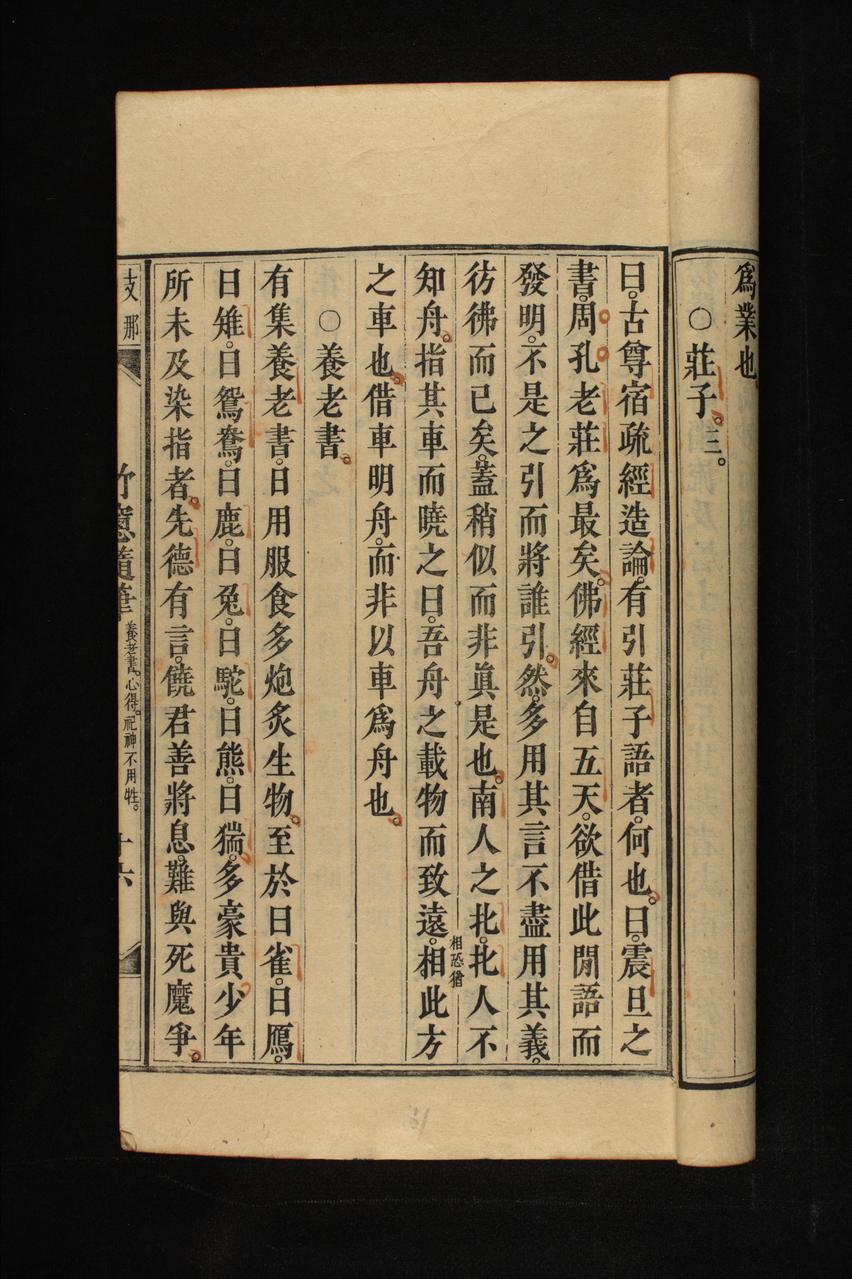 爲業也
○莊子。三。
曰。古尊宿疏經造論。有引莊子語者。何也。曰。震旦之
書。周孔老莊爲最矣。佛經來自五天。欲借此閒語而
發明。不是之引而將誰引。然多用其言不盡用其義。
彷彿而已矣。蓋稍似而非眞是也。南人之北。北人不
知舟。指其車而曉之曰。吾舟之載物而致遠。相此方
相恐猶
之車也。借車明舟。而非以車爲舟也。
○養老書。
有集養老書。日用服食多炮炙生物。至於曰雀。曰鴈。
曰雉。曰鴛鴦。曰鹿。曰兎。曰駝。曰熊。曰猯。多豪貴少年
所未及染指者。先德有言。饒君善將息。難與死魔爭。
支那
竹窻隨筆
養老書。心得。祀神不用牲。
十六